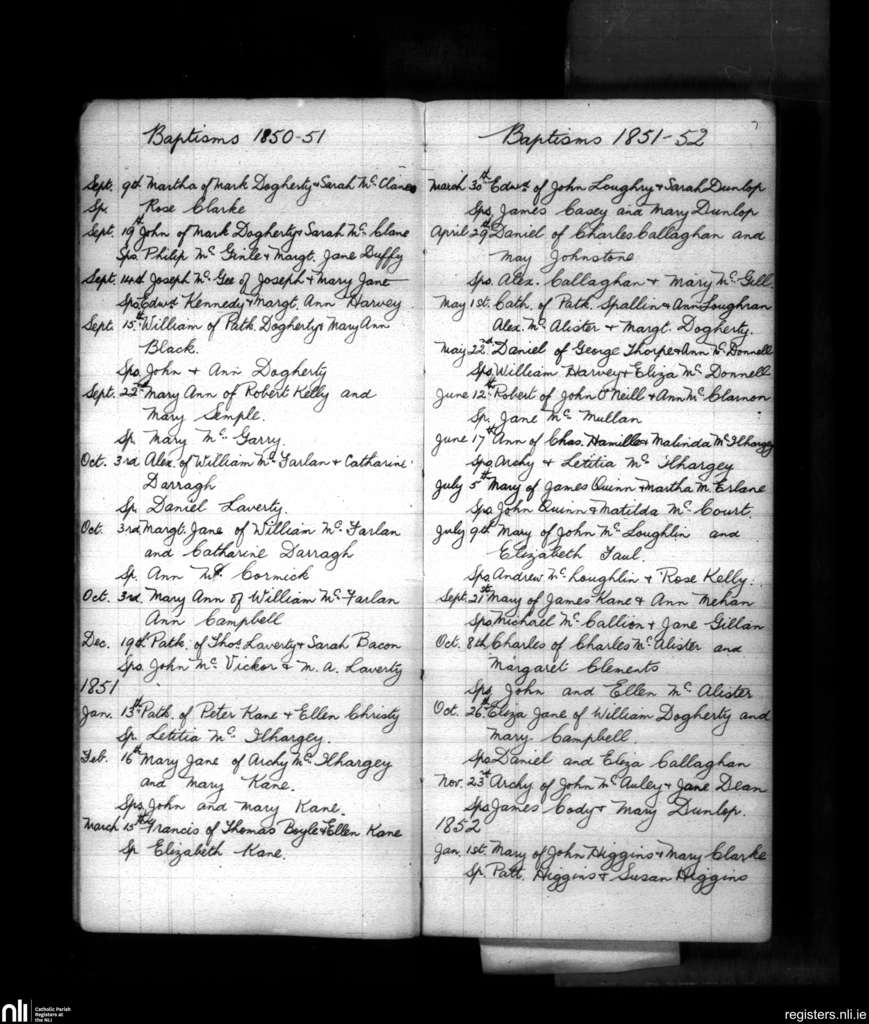 Baptisms 1850-51
Sept. 9th Martha of Mark Dogherty & Sarah Mc. Clane
Sp. Rose Clarke
Sept. 19th John of Mark Dogherty & Sarah Mc. Clane
Sps. Philip Mc Ginle & Margt. Jane Duffy
Sept. 14th Joseph Mc. Gee of Joseph & Mary Jane
Sps. Edwd. Kennedy & Margt. Ann Harvey
Sept. 15th William of Patk. Dogherty & Mary Ann
Black.
Sps. John & Ann Dogherty
Sept. 22nd Mary Ann of Robert Kelly and
Mary Semple.
Sp. Mary Mc. Garry.
Oct. 3rd Alex. of William Mc. Farlan & Catharine
Darragh
Sp. Daniel Laverty.
Oct. 3rd Margt. Jane of William Mc. Farlan
and Catharine Darragh
Sp. Ann Mc. Cormick
Oct. 3rd. Mary Ann of William Mc. Farlan
Ann Campbell
Dec. 19th Patk. of Thos. Laverty & Sarah Bacon
Sps. John Mc. Vicker & M. A. Laverty
1851
Jan. 13th Patk. of Peter Kane & Ellen Christy
Sp. Letitia Mc. Ilhargey.
Feb. 16th Mary Jane of Archy Mc. Ilhargey
and Mary Kane.
Sps. John and Mary Kane.
March 15th Francis of Thomas Boyle & Ellen Kane
Sp Elizabeth Kane.
Baptisms 1851-52
7
March 30th Edwd. of John Loughry & Sarah Dunlop
Sps. James Casey and Mary Dunlop
April 29th Daniel of Charles Callaghan and
May Johnstone
Sps. Alex. Callaghan & Mary Mc. Gill.
May 1st. Cath. of Patk. Spallin & Ann Loughran
Alex. Mc. Alister & Margt. Dogherty.
May 22nd. Daniel of George Thorpe & Ann Mc. Donnell
Sps. William Harvey & Eliza Mc. Donnell
June 12th Robert of John O'Neill & Ann Mc. Clarnon
Sp. Jane Mc. Mullan
June 17th Ann of Chas. Hamill & Malinda Mc. Ilhargey
Sps. Archy & Letitia Mc. Ilhargey
July 5th Mary of James Quinn & Martha M. Erlane
Sps. John Quinn & Matilda Mc. Court.
July 9th Mary of John Mc. Loughlin and
Elizabeth Faul.
Sps. Andrew Mc. Loughlin & Rose Kelly.
Sept. 21st. Mary of James Kane & Ann Mehan
Sps. Michael Mc. Callion & Jane Gillan
Oct. 8th Charles of Charles Mc. Alister and
Margaret Clements
Sps. John and Ellen Mc. Alister
Oct. 26th Eliza Jane of William Dogherty and
Mary Campbell.
Sps. Daniel and Eliza Callaghan
Nov. 23rd Archy of John Mc. Auley & Jane Dean
Sps. James Cody & Mary Dunlop.
1852
Jan. 1st. Mary of John Higgins & Mary Clarke
Sp. Patk. Higgins & Susan Higgins
nli Catholic Parish
Registers at
the NLI
registers.nli.ie